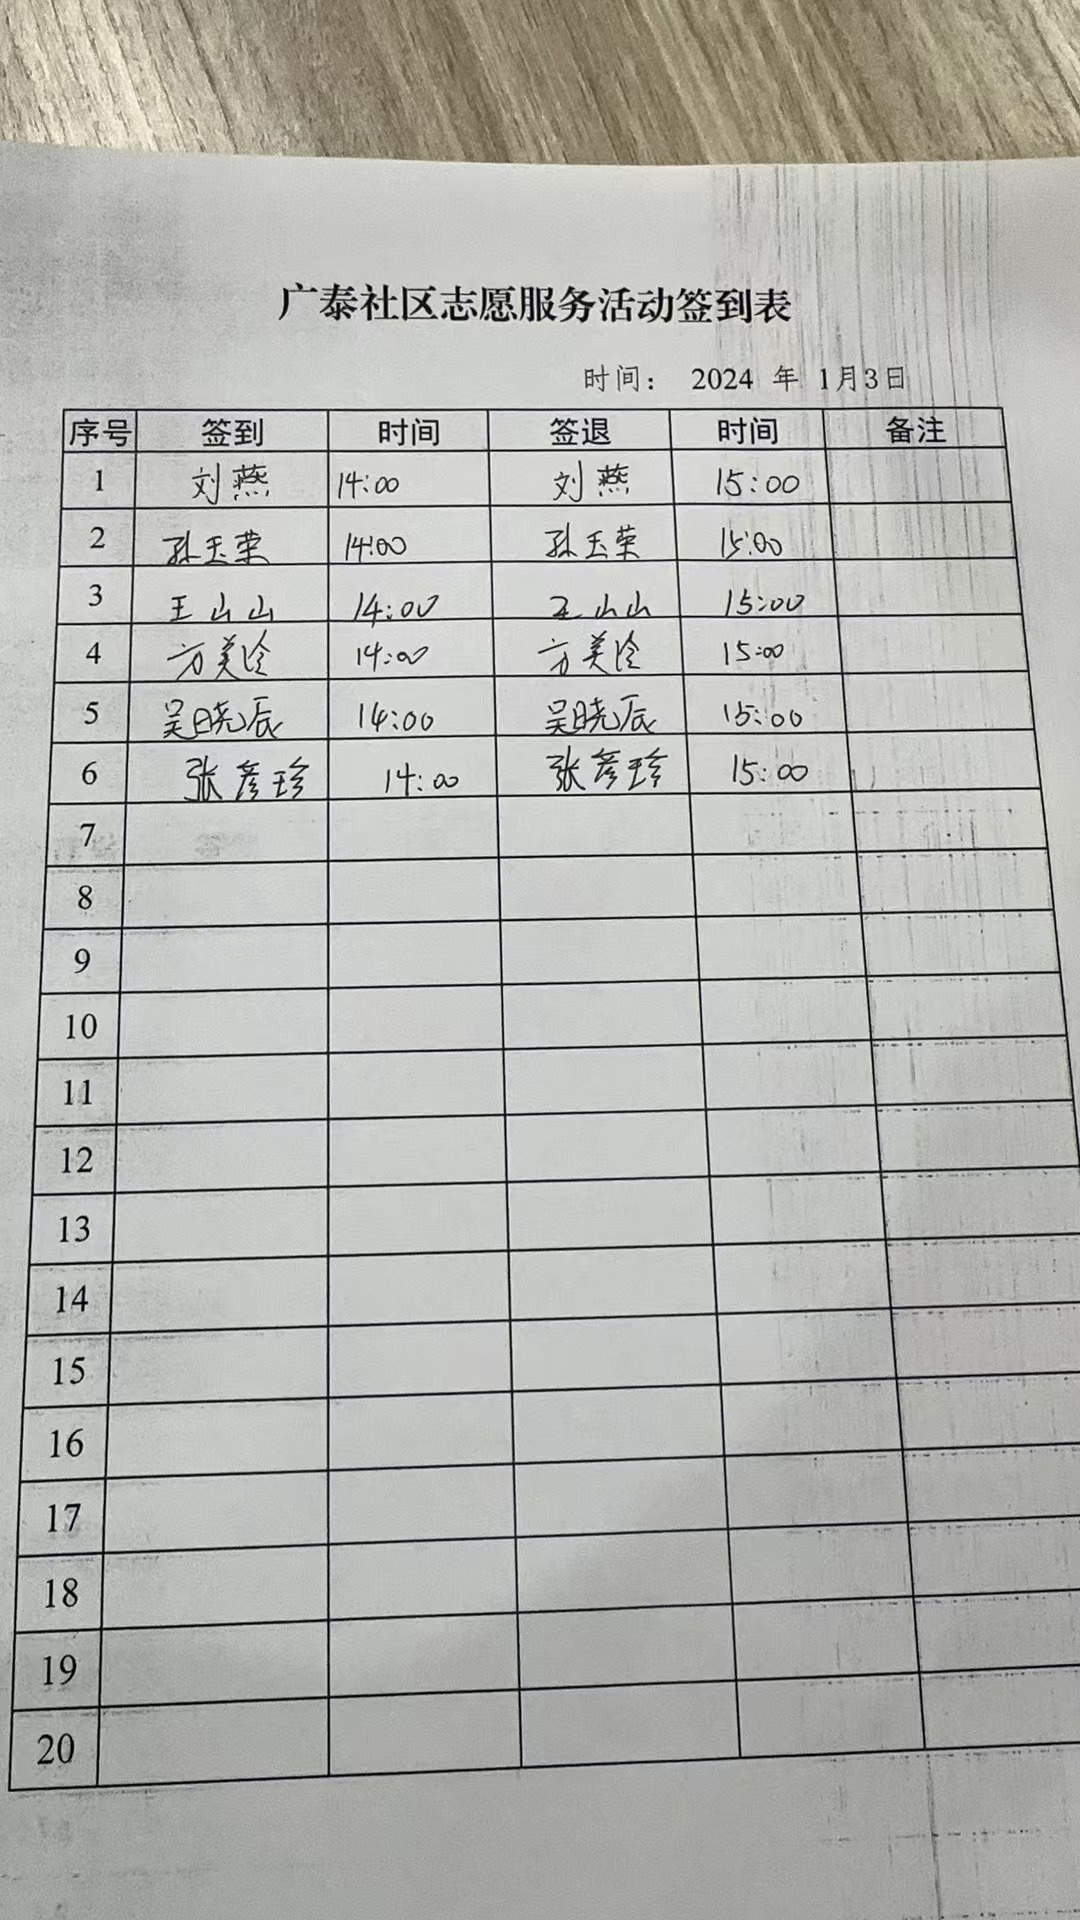 广泰社区志愿服务活动签到表
时间： 2024 年 1月3日
序号 签到 时间 签退 时间 备注
1 刘燕 14:00 刘燕 15:00
2 孙玉荣 14:00 孙玉荣 15:00
3 王山山 14:00 王山山 15:00
4 方美玲 14:00 方美玲 15:00
5 吴晓辰 14:00 吴晓辰 15:00
6 张彦珍 14:00 张彦珍 15:00
7
8
9
10
11
12
13
14
15
16
17
18
19
20